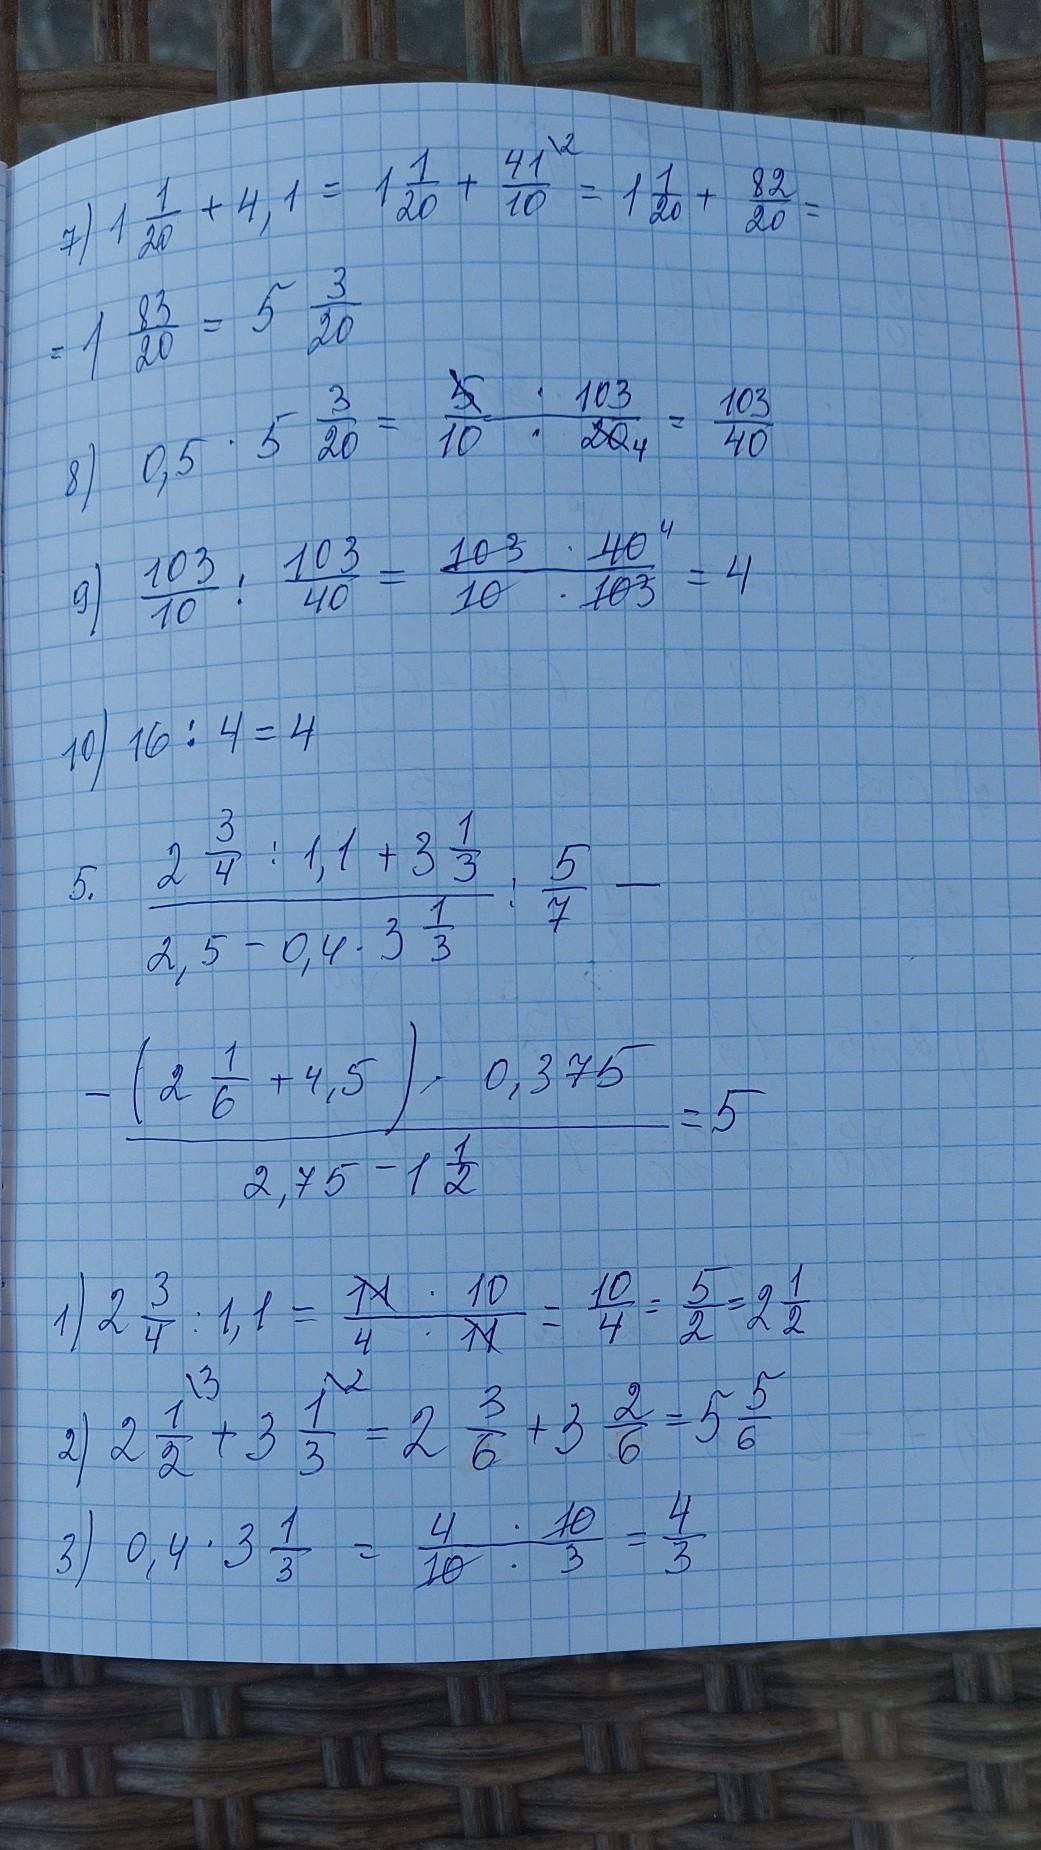 7) 1 1/20 + 4,1 = 1 1/20 + 41/10 \2 = 1 1/20 + 82/20 =
= 1 83/20 = 5 3/20
8) 0,5 · 5 3/20 = 5 · 103 / 10 · 20 4 = 103/40
9) 103/10 : 103/40 = 103 · 40 4 / 10 · 103 = 4
10) 16 : 4 = 4
5. 2 3/4 : 1,1 + 3 1/3 / 2,5 - 0,4 · 3 1/3 : 5/7 -
- (2 1/6 + 4,5) · 0,375 / 2,75 - 1 1/2 = 5
1) 2 3/4 : 1,1 = 11 · 10 / 4 · 11 = 10/4 = 5/2 = 2 1/2
2) 2 1/2 \3 + 3 1/3 \2 = 2 3/6 + 3 2/6 = 5 5/6
3) 0,4 · 3 1/3 = 4 · 10 / 10 · 3 = 4/3